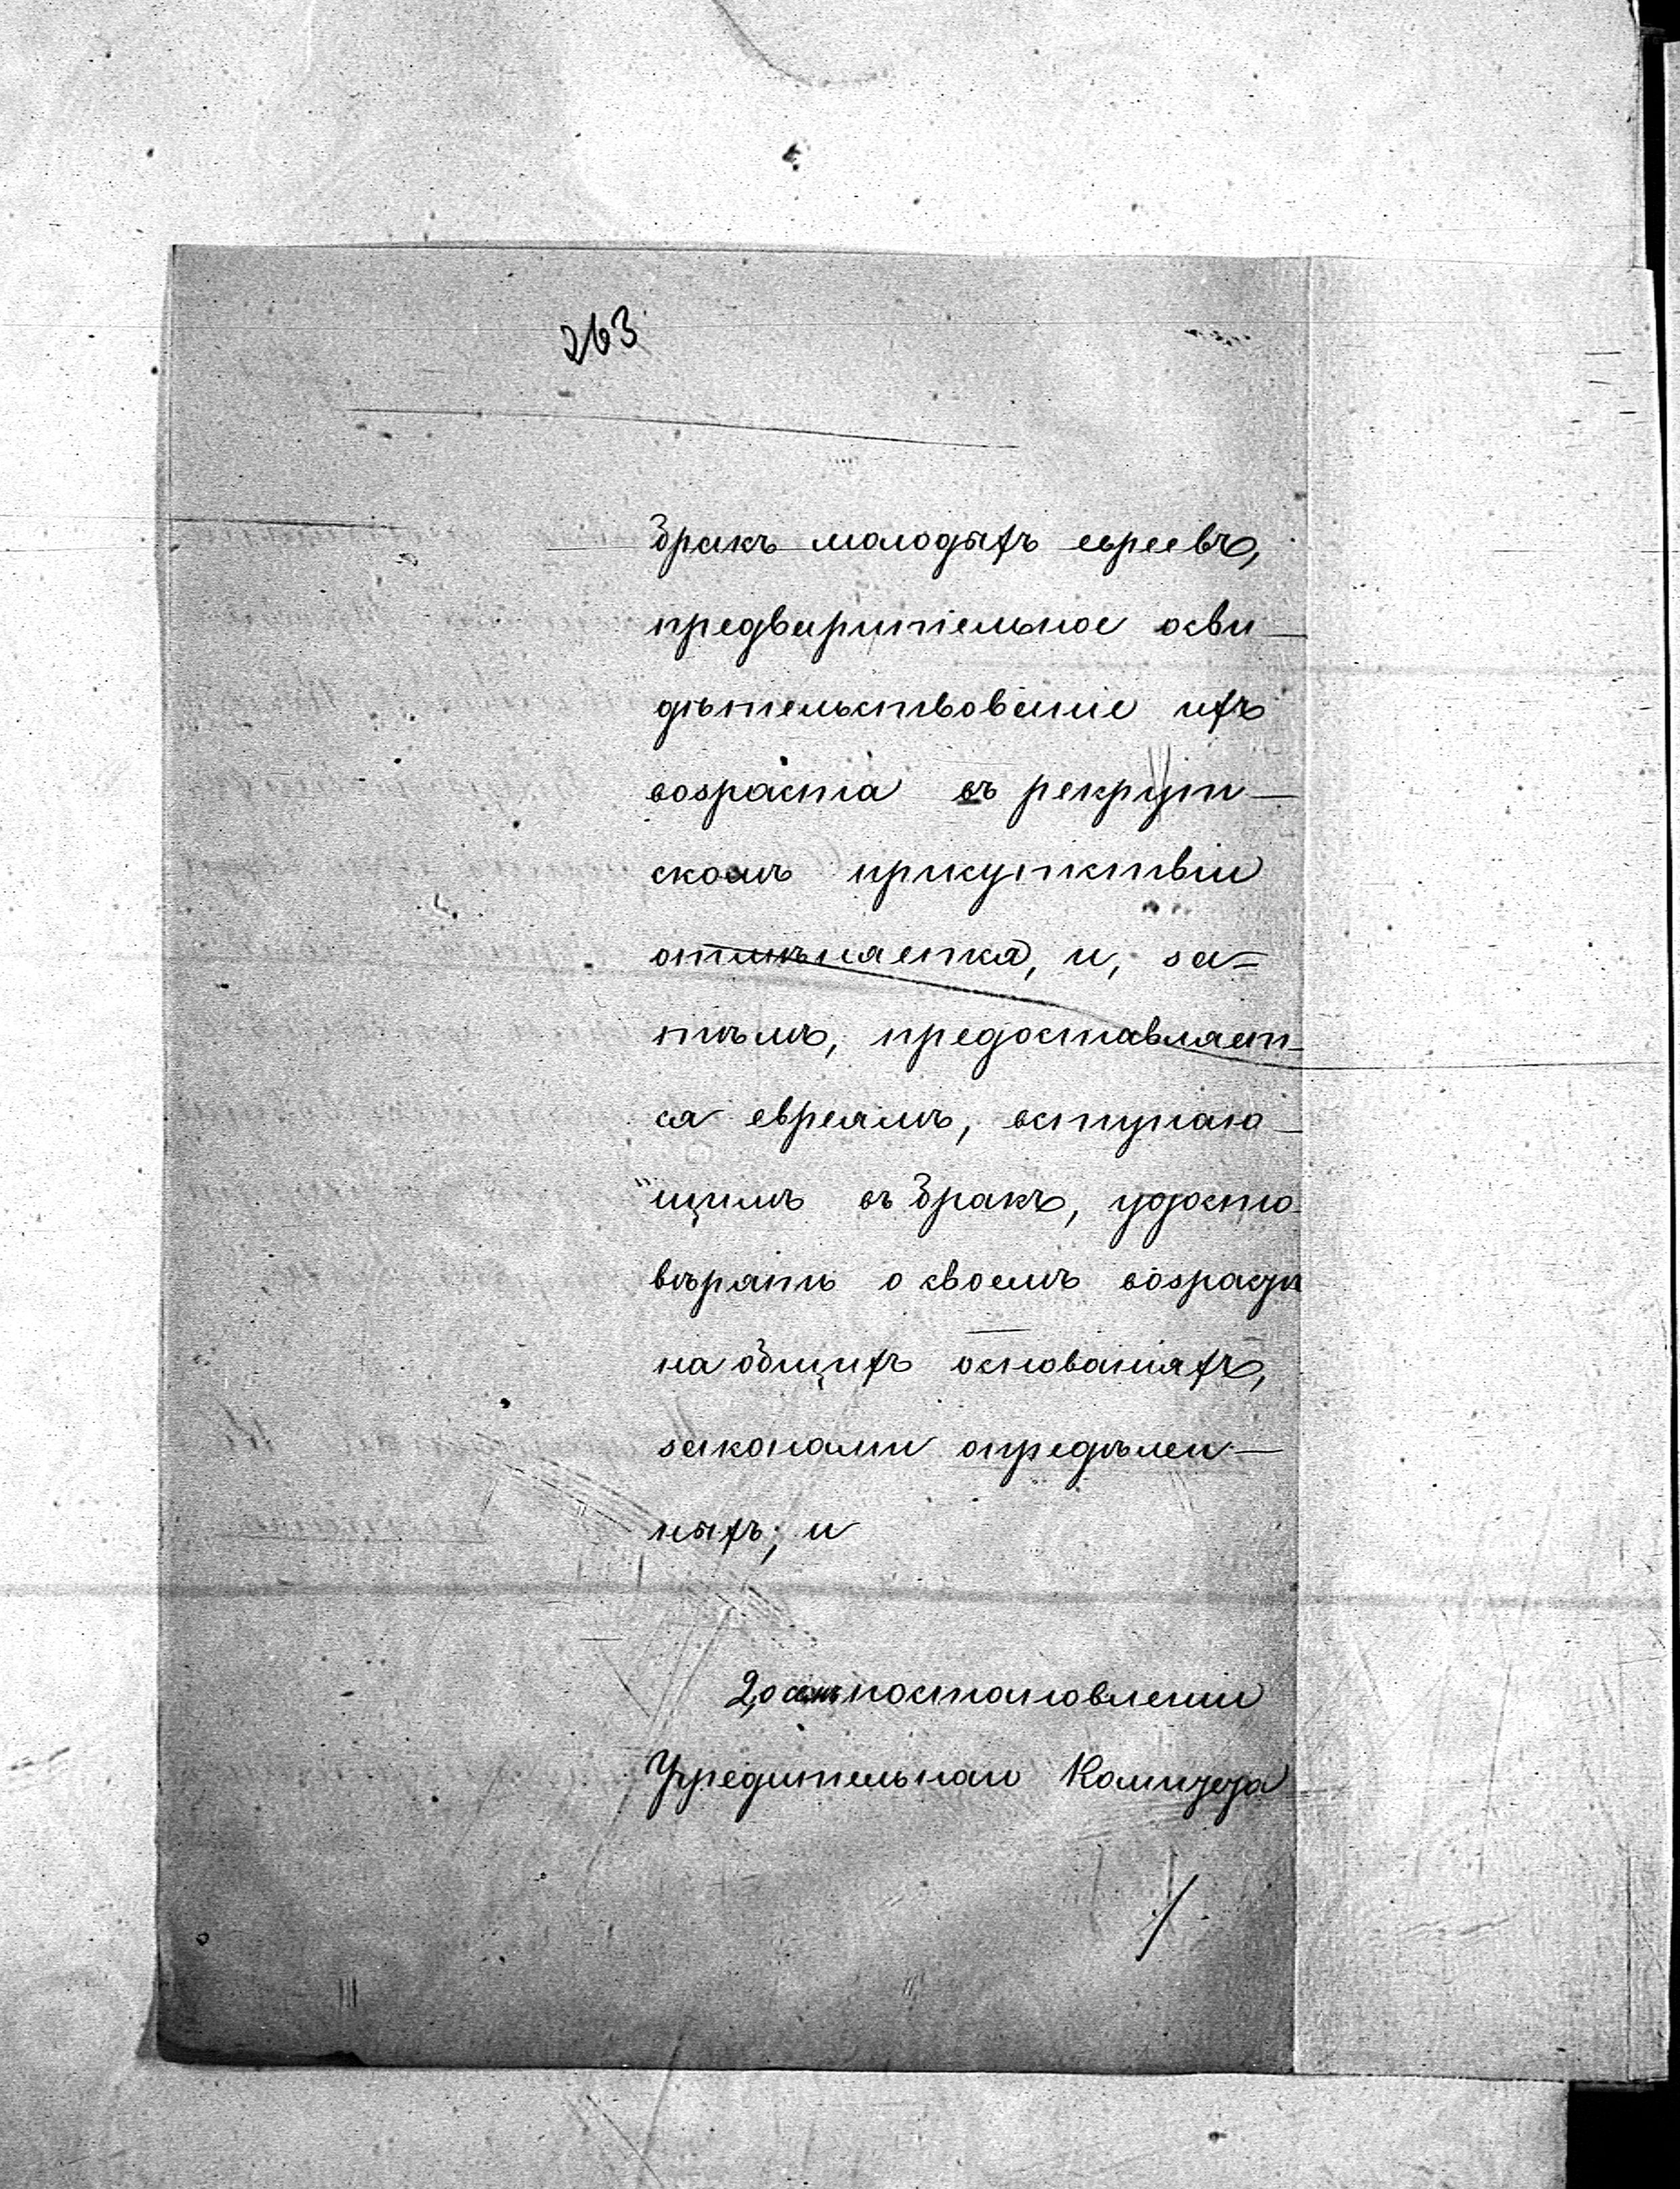 263
бракъ молодыхъ евреевъ,
предварительное осви-
дѣтельствованіе ихъ
возраста въ рекрут-
скомъ присутствіи
отмѣняется, и, за=
тѣмъ, предоставляет-
ся евреямъ, вступаю-
щимъ въ бракъ, удосто-
вѣрять о своемъ возрастѣ
на общихъ основаніяхъ,
законами опредѣлен-
ныхъ; и
2, о семъ постановленіи
Учредительнаго Комитета